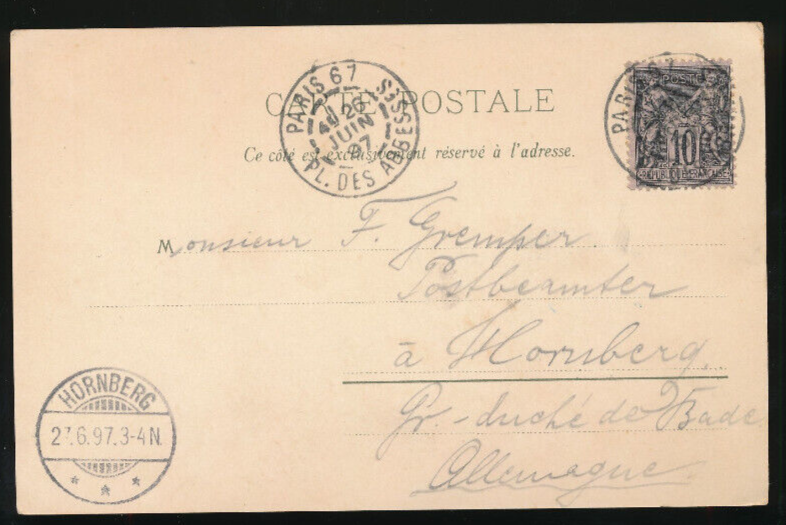 CARTE POSTALE
Ce côté est exclusivement réservé à l'adresse.
PARIS 67
26
JUIN
97
PL. DES ABBESSES
PARIS 67
POSTE
10
REPUBLIQUE FRANÇAISE
Monsieur F. Gremper
Postbeamter
à Hornberg
Gr.-duché de Bade
Allemagne.
HORNBERG
27.6.97.3-4N.
* * *